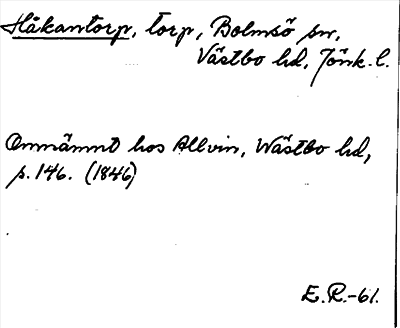 Håkantorp, torp, Bolmsö sn,
Västbo hd, Jönk. l.
Omnämnt hos Allvin, Wästbo hd,
p. 146. (1846)
E. R.-61.